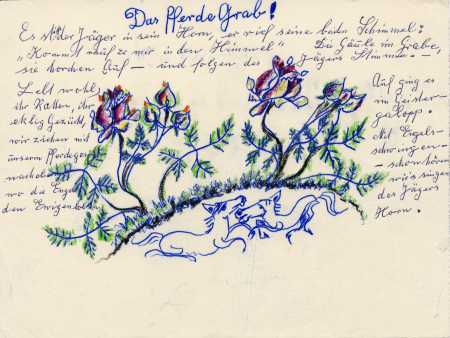 Das Pferde Grab!
Es der Jäger in sein Horn, er rief seine beiden Schimmel:
"Kommt rauf zu mir in den Himmel" Die Gäule im Grabe,
sie horchen Auf — und folgen des Jägers Stimme. —
Lebt wohl
ihr Ratten, ihr
eklig Gezücht,
wir ziehen mit
unserm Pferde
nach
wo die Engel
den
Auf ging es
im Geister-
galopp.
mit Engels-
schwingen —
schon hören
wir's singen
des Jägers
Horn.